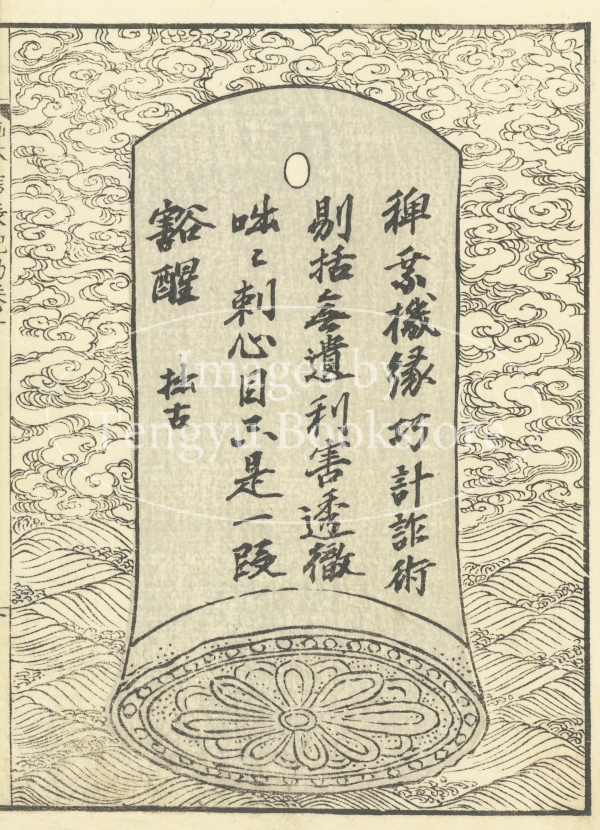 稗乗機縁巧計詐術
剔括無遺利害透徹
咄〻刺心目不是一段
豁醒　拙古
Images by
Tengyu Bookstore